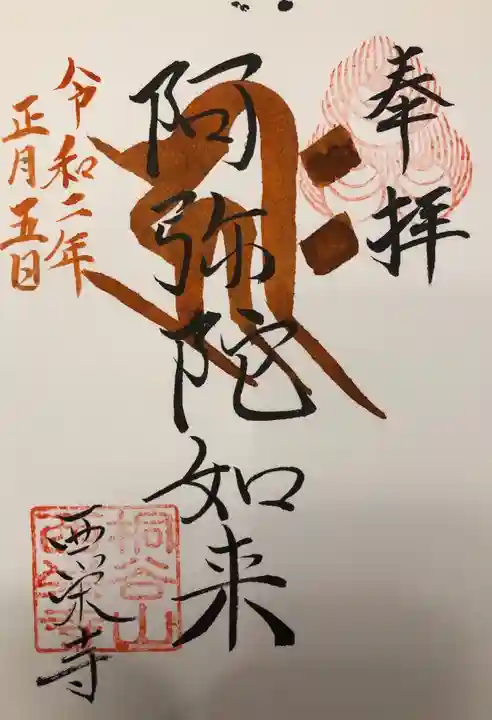 奉拝
阿弥陀如来
西栄寺
桐谷山
西栄寺
令和二年
正月五日